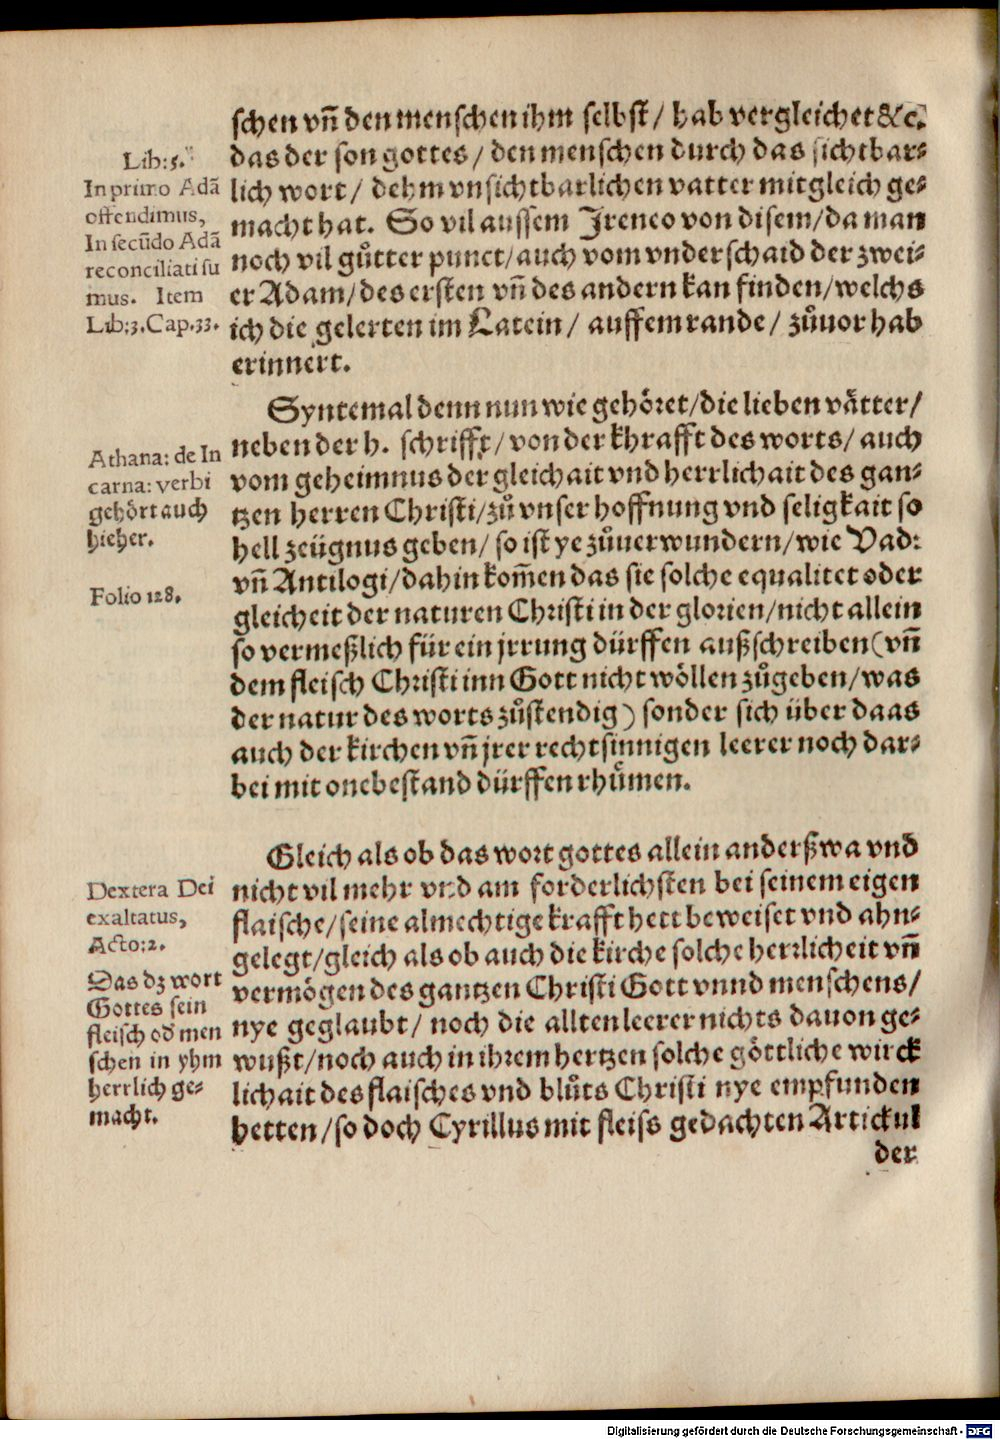 schen vñ den menschen ihm selbst / hab vergleichet &c.
das der son gottes / den menschen durch das sichtbar⸗
lich wort / dehm vnsichtbarlichen vatter mitgleich ge⸗
macht hat. So vil aussem Ireneo von disem / da man
noch vil gůtter punct / auch vom vnderschaid der zwei⸗
er Adam / des ersten vñ des andern kan finden / welchs
ich die gelerten im Latein / auffem rande / zůuor hab
erinnert.
Lib:5.
In primo Adã
offendimus,
In secũdo Adã
reconciliati su
mus. Item
Lib:3.Cap.33.
Syntemal denn nun wie gehöret / die lieben vätter /
neben der h. schrifft / von der khrafft des worts / auch
vom geheimnus der gleichait vnd herrlichait des gan⸗
tzen herren Christi / zů vnser hoffnung vnd seligkait so
hell zeügnus geben / so ist ye zůuerwundern / wie Vad:
vñ Antilogi / dahin kom̃en das sie solche equalitet oder
gleicheit der naturen Christi in der glorien / nicht allein
so vermeßlich für ein jrrung dürffen außschreiben (vñ
dem fleisch Christi inn Gott nicht wöllen zůgeben / was
der natur des worts zůstendig) sonder sich über daas
auch der kirchen vñ jrer rechtsinnigen leerer noch dar⸗
bei mit onebestand dürffen rhůmen.
Athana: de In
carna: verbi
gehört auch
hieher.
Folio 128.
Gleich als ob das wort gottes allein anderßwa vnd
nicht vil mehr vnd am forderlichsten bei seinem eigen
flaische / seine almechtige krafft hett beweiset vnd ahn⸗
gelegt / gleich als ob auch die kirche solche herrlicheit vñ
vermögen des gantzen Christi Gott vnnd menschens /
nye geglaubt / noch die allten leerer nichts dauon ge⸗
wußt / noch auch in ihrem hertzen solche göttliche wirck
lichait des flaisches vnd blůts Christi nye empfunden
hetten / so doch Cyrillus mit fleiss gedachten Artickul
der
Dextera Dei
exaltatus,
Acto:2.
Das dz wort
Gottes sein
fleisch od̃ men
schen in yhm
herrlich ge⸗
macht.
Digitalisierung gefördert durch die Deutsche Forschungsgemeinschaft - DFG